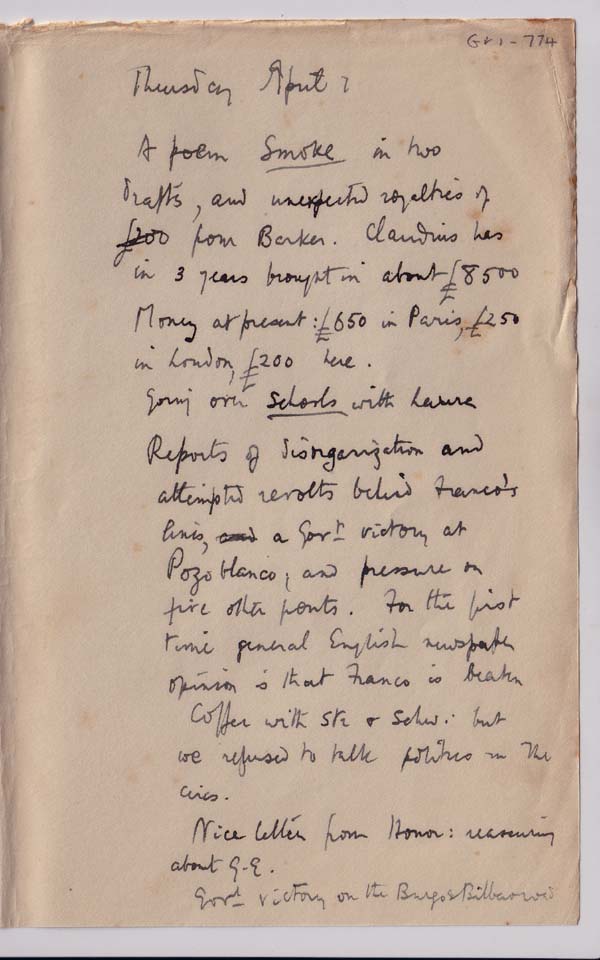 GR1-774
Thursday April 1
A poem Smoke in two
drafts, and unexpected royalties of
£200 from Barker. Claudius has
in 3 years brought in about £8500
Money at present: £650 in Paris, £250
in London, £200 here.
Going over Schools with Laura
Reports of disorganization and
attempted revolts behind Franco's
lines, and a Govt victory at
Pozoblanco, and pressure on
five other points. For the first
time general English newspaper
opinion is that Franco is beaten
Coffee with Str & Schw: but
we refused to talk politics in the
circs.
Nice letter from Honor: reassuring
about G-E.
Govt victory on the Burgos Bilbao road